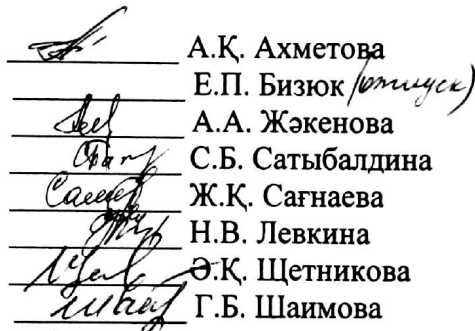 А.Қ. Ахметова
Е.П. Бизюк (отпуск)
А.А. Жәкенова
С.Б. Сатыбалдина
Ж.Қ. Сағнаева
Н.В. Левкина
Ә.Қ. Щетникова
Г.Б. Шаимова